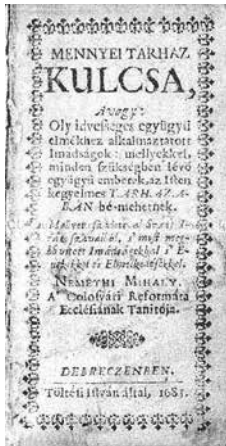 MENNYEI TARHAZ
KULCSA,
Avagy:
Oly idvességes együgyű
elmékhez alkalmaztatott
Imadságok: mellyekkel,
minden szükségben lévő
együgyű emberek, az Isten
kegyelmes TARHAZA-
BAN bé-mehetnek.
's most meg-
bővittett Imádságokkal 's É-
nekekkel és Elmélkedésekkel.
NEMETHI MIHALY.
A' Colosvári Reformata
Ecclésiának Tanitója.
DEBRECZENBEN,
Töltési István által, 1685.